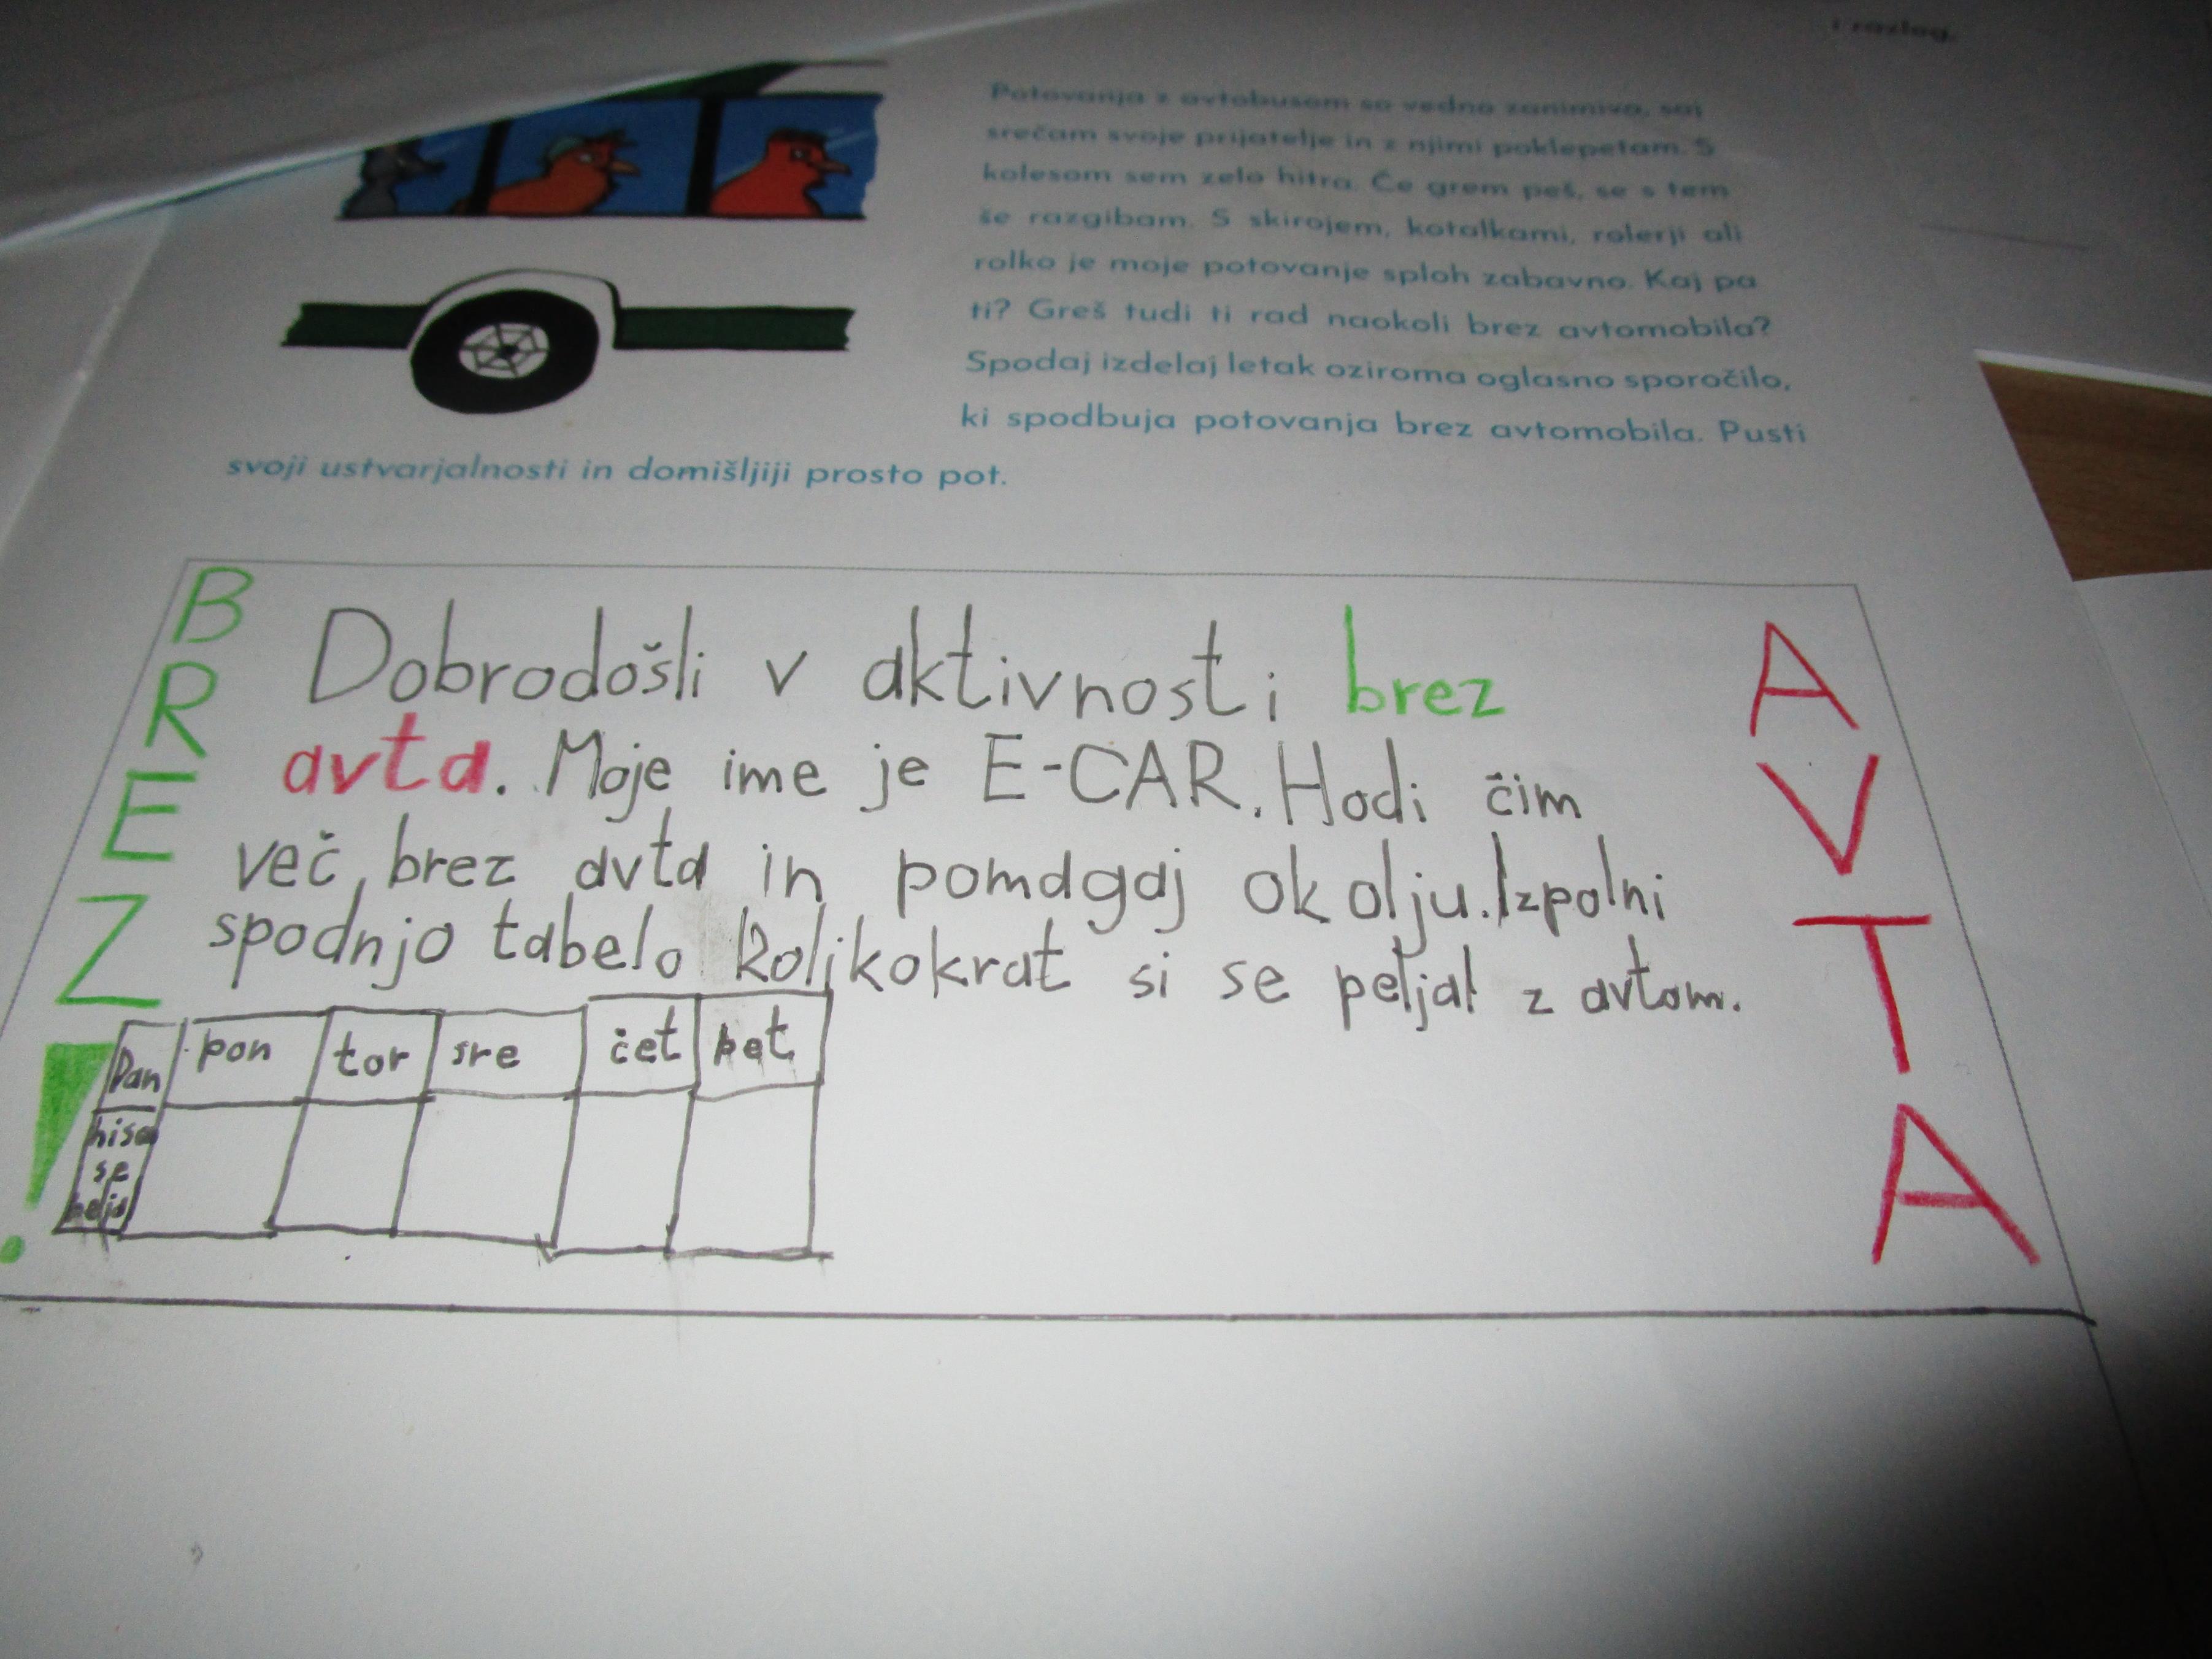 i razlog.
Potovanja z avtobusom so vedno zanimiva, saj
srečam svoje prijatelje in z njimi poklepetam. S
kolesom sem zelo hitra. Če grem peš, se s tem
še razgibam. S skirojem, kotalkami, rolerji ali
rolko je moje potovanje sploh zabavno. Kaj pa
ti? Greš tudi ti rad naokoli brez avtomobila?
Spodaj izdelaj letak oziroma oglasno sporočilo,
ki spodbuja potovanja brez avtomobila. Pusti
svoji ustvarjalnosti in domišljiji prosto pot.
BREZ!
Dobrodošli v aktivnosti brez
avta. Moje ime je E-CAR. Hodi čim
več, brez avta in pomagaj okolju. Izpolni
spodnjo tabelo kolikokrat si se peljal z avtom.
Dan pon tor sre čet pet
se
AVTA